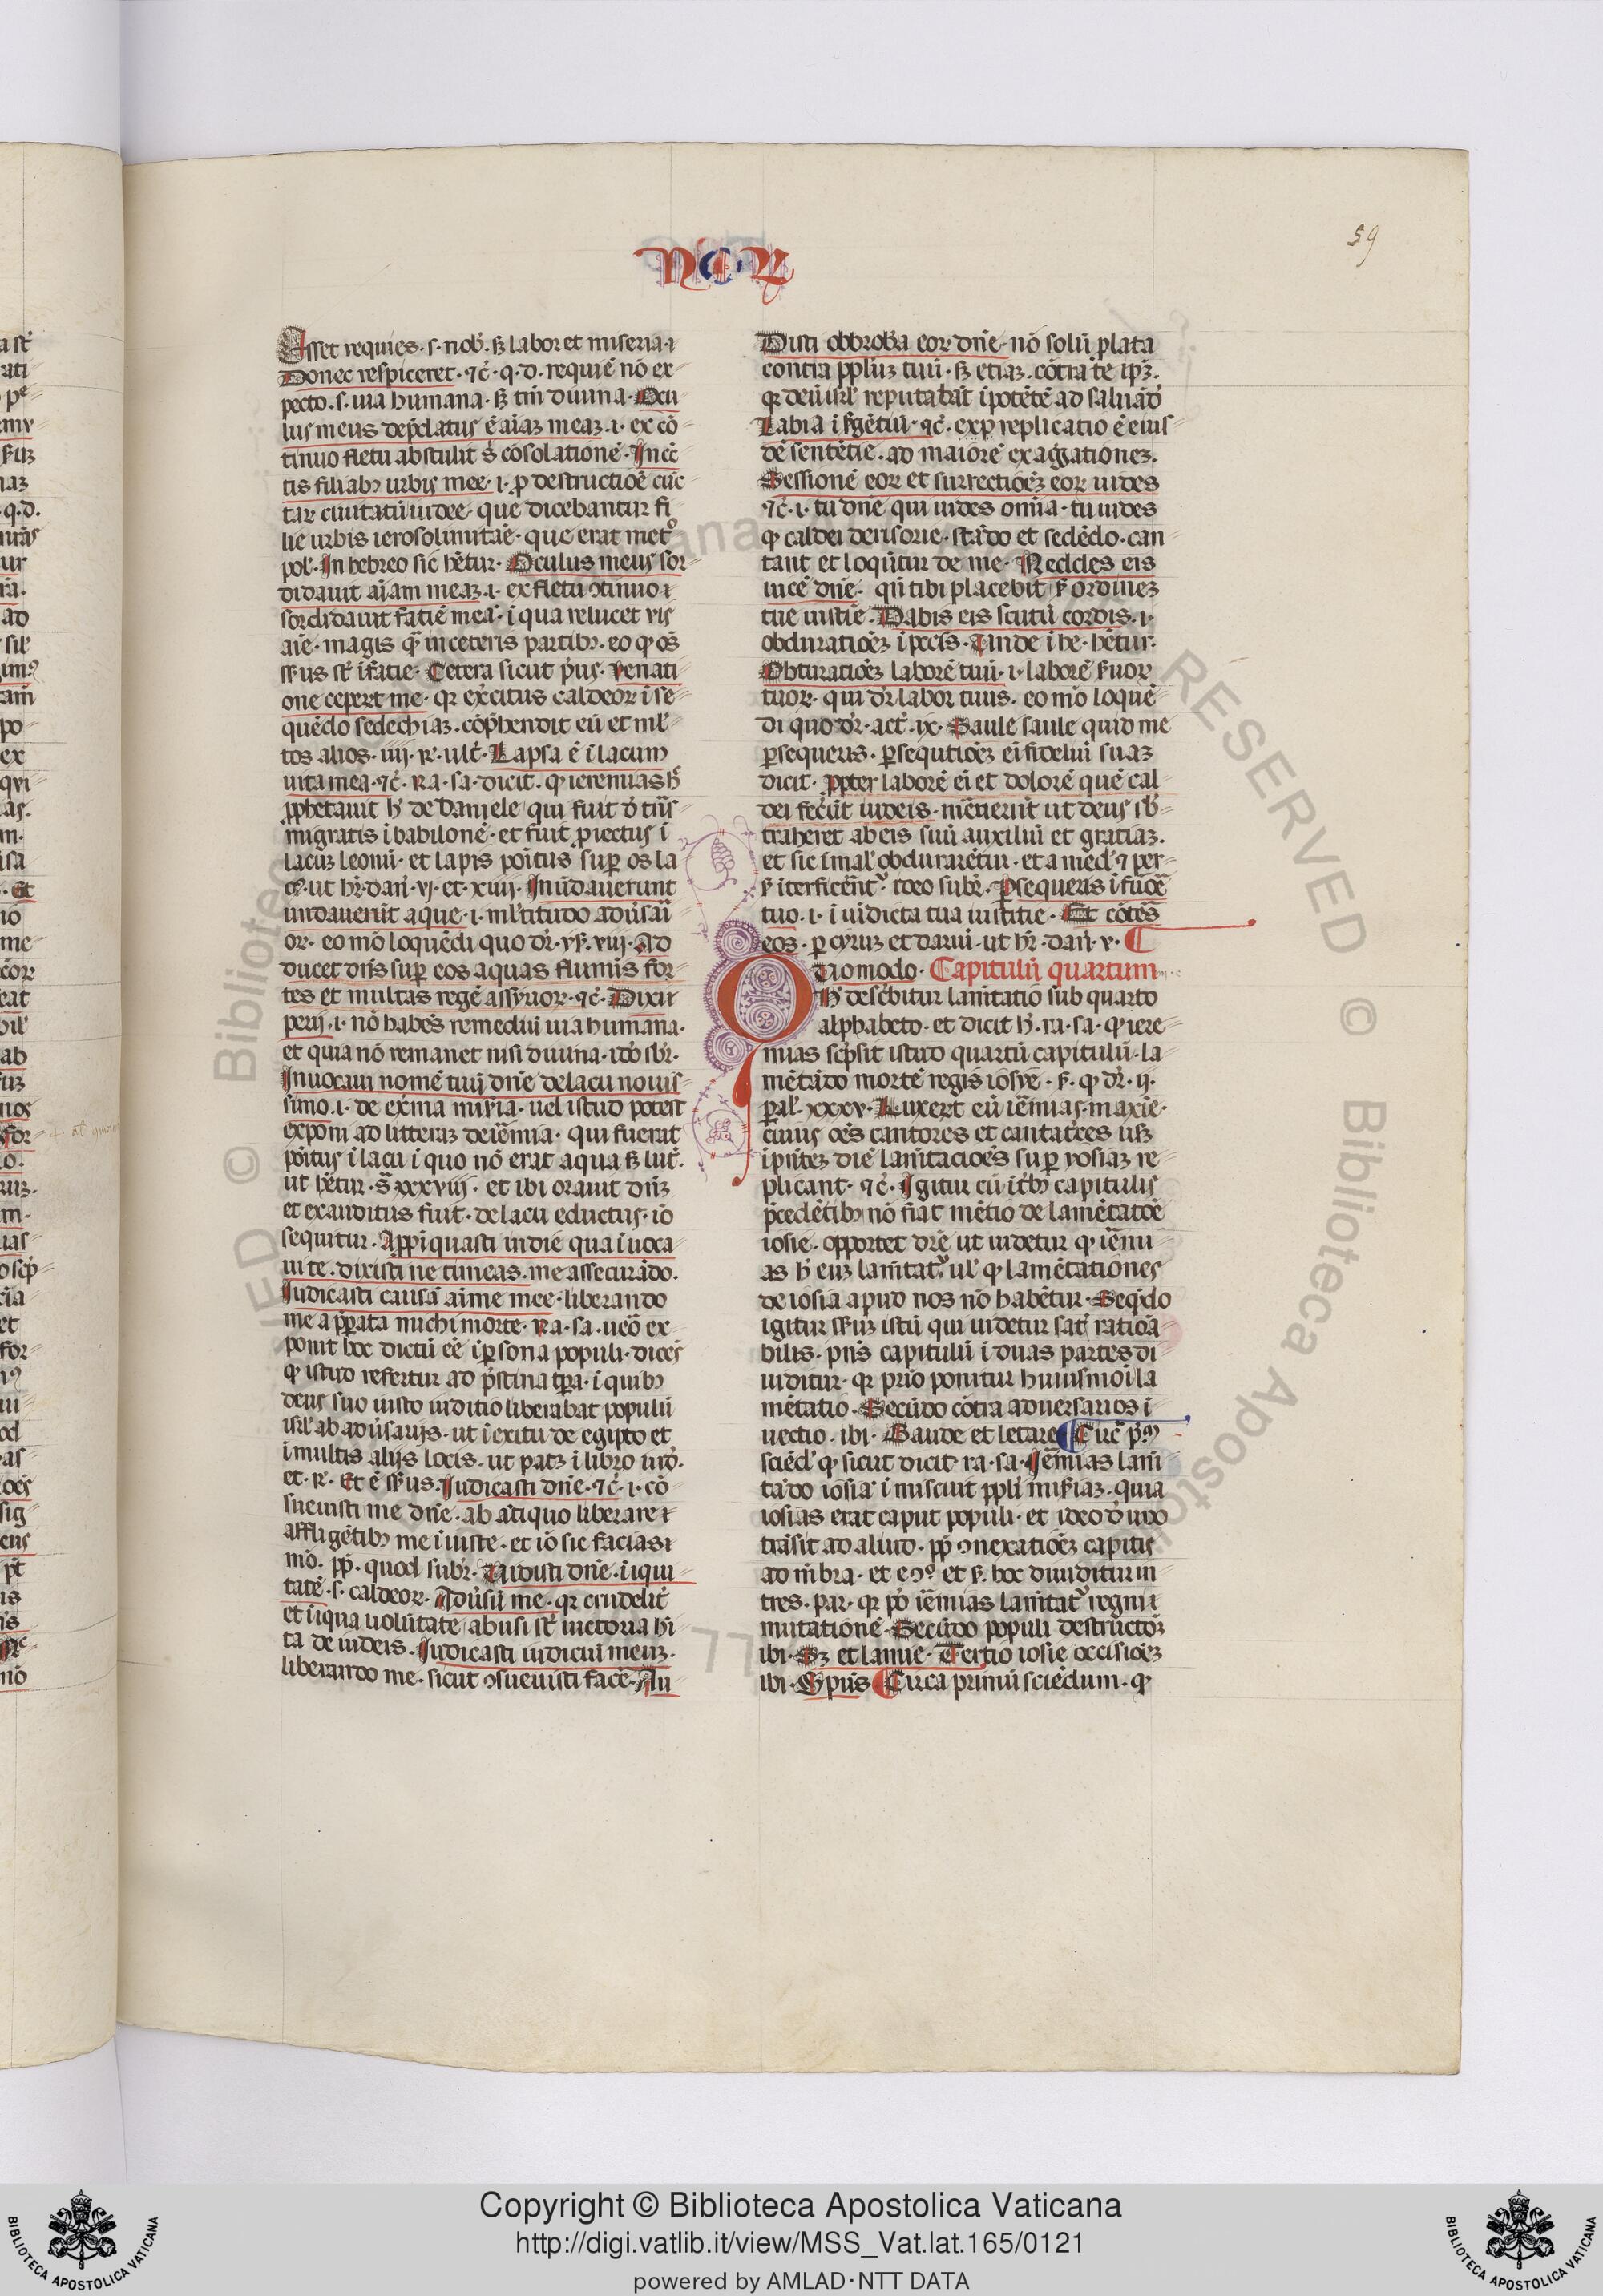 59
Esset requies · s · nob̓ · sꝫ labor et miseria · ⁊
Donec respiceret · ⁊c̓ · q · d · requiē nō ex
pecto · s · uia humana · sꝫ tm̄ diuina · Ocu
lus meus dep̄datus ē aīaꝫ meaꝫ · i · ex cō
tinuo fletu abstulit ei cōsolationē · In cē
tis filiabꝫ urbis mee · i · ꝓ destructiōe cūc
tar ciuitatū iudee · que dicebantur fi
lie urbis ierosolimitāe · que erat metᵒ
pol̓ · In hebreo sic hētur · Oculus meus sor
didauit aīam meaꝫ · i · ex fletu ꝯtinuo ⁊
sordidauit fatiē meā · ī qua relucet vis
aīe · magis qͣ in ceteris partibꝫ · eo qꝫ oēs
sēsus st̄ ī fatie · Cetera sicut p̓us · Venati
one ceperūt me · qꝛ exc̓itus caldeoꝝ īse
quēdo sedechiaꝫ · cōp̄hendit eū et ml̓
tos alios · iiij · R · ult̓ · Lapsa ē ī lacum
uita mea · ⁊c̓ · Ra · sa · dicit · qꝫ ieremias h̓
ꝓphetauit h̓ de daniele qui fuit d̓ tn̄s
migratis ī babilonē · et fuit ꝓiectus ī
lacuꝫ leonū · et lapis po̓itus suꝑ os la
c̓ · ut hr̄ · dan̄ · vj · et · xiiij · Inūdauerunt
undauerūt aque · i · ml̓titudo adūsaī
oꝝ · eo mō loquēdi quo dr̄ · ys · viij · Ad
ducet dn̄s suꝑ eos aquas fluminis for
tes et multas regē assyrioꝝ · ⁊c̓ · Dixi
perij · i · nō habēs remediū uia humana ·
et quia nō remanet nisi diuina · id̓o sbr̓ ·
Inuocaui nomē tuū dn̄e de lacu nouis
simo · i · de ex̓ma mis̓ia · uel istud potest
exponi ad litteraꝫ de ie̅mia · qui fuerat
po̓itus ī lacu ī quo nō erat aqua sꝫ lut̓ ·
ut hētur · s̄ xxxviij · et ibi orauit dn̄ꝫ
et exauditus fuit · de lacu eductus · iō
sequitur · Appīquasti in die qua īuoca
ui te · dixisti ne timeas · me assecurādo ·
Iudicasti causā aīme mee · liberando
me a ꝑata michi morte · Ra · sa · ūo ex
ponit hoc dictū eē ī ꝑsona populi · dicēs
qꝫ istud refertur ad p̓stina tꝑa · ī quibꝫ
deus suo iusto iuditio liberabat populū
isrl̓ ab adūsarijs · ut ī exitu de egipto et
ī multis alijs locis · ut patꝫ ī libro iud̓ ·
et · R · Et ē sēsus · Iudicasti dn̄e · ⁊c̓ · i · cō
sueuisti me dn̄e · ab atiquo liberare ⁊
affligētibꝫ me īiuste · et iō sic facias ⁊
mō · ꝓp̓ · quod subr̄ · Uidisti dn̄e · īiqui
tatē · s · caldeoꝝ · Adūsū me · qꝛ crudelit̓
et īiqua uolūtate abusi st̄ uictoria hī
ta de iudeis · Iudicasti iudiciū meuꝫ ·
liberando me · sicut ꝯsueuisti facē · Au
Disti obbrob̓a eoꝝ dn̄e · nō solū plata
contra ppl̄uꝫ tuū · sꝫ etiaꝫ · cōtra te ip̄ꝫ ·
qꝛ deū isrl̓ reputabāt īpotētē ad saluādū
Labia ī sgētiū · ⁊c̓ · exp̱ replicatio ē eius
dē sentētie · ad maiorē exaḡgationeꝫ ·
Sessionē eoꝝ et surrectiōeꝫ eoꝝ uides
⁊c̓ · i · tu dn̄e qui uides omīa · tu uides
qꝫ caldei derisorie · stādo et sedēdo · can
tant et loqūtur de me · Reddes eis
uicē dn̄e · qn̄ tibi placebit s ordineꝫ
tue iustīe · Dabis eis scutū cordis · i ·
obduratiōeꝫ ī pecc̄is · Unde ī he · hētur ·
Obturatiōeꝫ laborē tuū · i · laborē s̓uoꝝ
tuoꝝ · qui dr̄ labor tuus · eo mō loquē
di quo dr̄ · act̓ · ix · Saule saule quid me
ꝑsequeris · ꝑsequtiōeꝫ ei̓ fideliū suaꝫ
dicit · ꝓpter laborē ei̓ et dolorē quē cal
dei fec̓ūt iudeis · mēuerūt ut deus sb̓
traheret ab eis suū auxiliū et gratiaꝫ ·
et sic ī mal̓ obdurarētur · et a med̓ ⁊ per
s īterficēnt̓ · ideo subr̄ · Ꝑsequeris ī fuōe
tuo · i · ī uīdicta tua iustitie · Et cōtēs
eos · ꝑ cyruꝫ et dariū · ut hr̄ · dan̄ · v ·
Uomodo · Capitulū quartum
H̓ desc̓bitur lam̄tatio sub quarto
alphabeto · et dicit h̓ · ra · sa · qꝫ iere
mias sc̓psit istud quartū capitulū · la
mētādo mortē regis iosye · s · qꝫ dr̄ · ij ·
ꝑal̓ · xxxv · Luxerūt eū ie̅mias · maxīe ·
cuius oēs cantores et cantatrices usqꝫ
ī pn̄teꝫ diē lam̄tacioēs suꝑ yosiaꝫ re
plicant · ⁊c̓ · Igitur cū ī tribꝫ capitulis
p̄cedētibꝫ nō fiat mētio de lamētatōe
iosie · opportet dr̄e ut uidetur qꝫ ie̅mi
as h̓ euꝫ lam̄tat̓ · ul̓ qꝫ lamētationes
de iosia apud nos nō habētur · Seq̄do
igitur sēsuꝫ istū qui uidetur sat̓ ratiōa
bilis · pn̄s capitulū ī duas partes di
uiditur · qꝛ prīo ponitur huiusmōi la
mētatio · Secūdo cōtra aduersarios ī
uectio · ibi · Gaude et letare Circ̄ p̓mū
sciēd̓ qꝫ sicut dicit · ra · sa · Ie̅mias lam̄
tādo iosiā īmiscuit ppl̓i mis̓iaꝫ · quia
iosias erat caput populi · et ideo d̓ uno
trāsit ad aliud · ꝓp̓ ꝯnexatiōeꝫ capitis
ad mēbra · et eꝯ° · et s · hoc diuiditur in
tres · par · qꝛ p̓o ie̅mias lam̄tat̓ regni ⁊
mutationē · Secūdo populi destructōeꝫ
ibi · Sꝫ et lamie · Tertio iosie occisiōeꝫ
ibi · Spūs Circa primū sciēdum · qꝫ
Copyright © Biblioteca Apostolica Vaticana
http://digi.vatlib.it/view/MSS_Vat.lat.165/0121
powered by AMLAD·NTT DATA